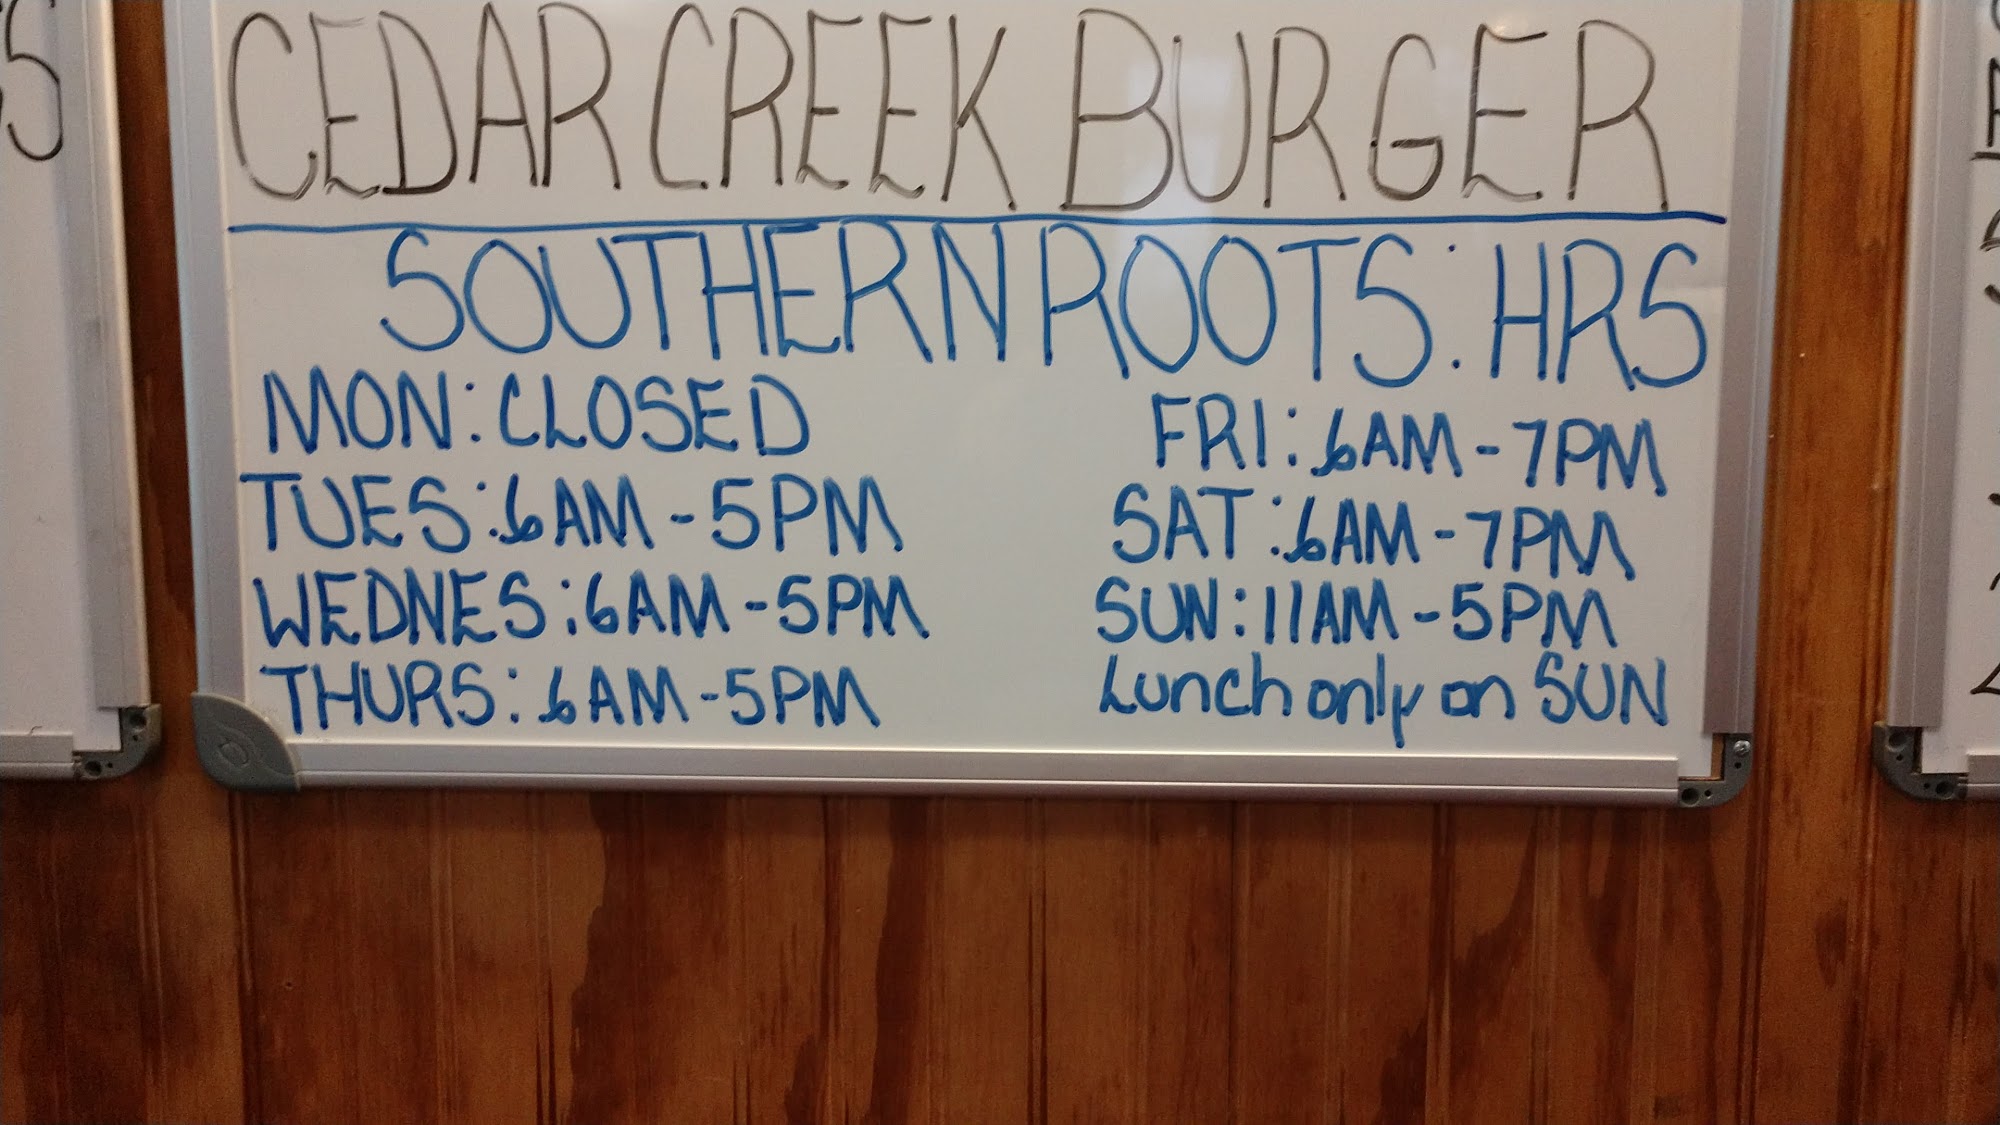 CEDAR CREEK BURGER
SOUTHERN ROOTS: HRS
MON: CLOSED
TUES: 6AM - 5PM
WEDNES: 6AM - 5PM
THURS: 6AM - 5PM
FRI: 6AM - 7PM
SAT: 6AM - 7PM
SUN: 11AM - 5PM
Lunch only on SUN